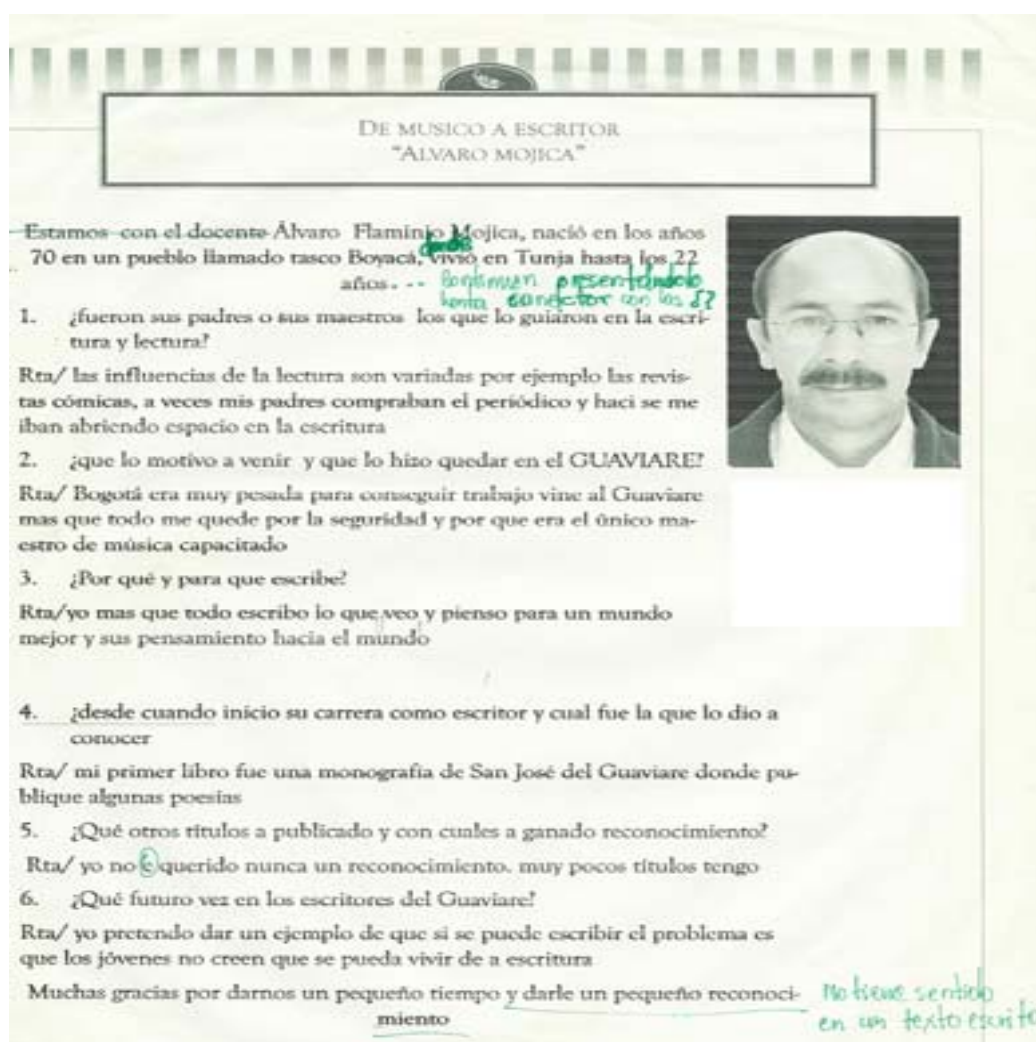 DE MUSICO A ESCRITOR
"ALVARO MOJICA"
Estamos con el docente Álvaro Flaminio Mojica, nació en los años
donde
70 en un pueblo llamado tasco Boyacá, vivió en Tunja hasta los 22
años... Continuen presentándolo
hasta conector con las ¿?
1. ¿fueron sus padres o sus maestros los que lo guiaron en la escri-
tura y lectura?
Rta/ las influencias de la lectura son variadas por ejemplo las revis-
tas cómicas, a veces mis padres compraban el periódico y haci se me
iban abriendo espacio en la escritura
2. ¿que lo motivo a venir y que lo hizo quedar en el GUAVIARE?
Rta/ Bogotá era muy pesada para conseguir trabajo vine al Guaviare
mas que todo me quede por la seguridad y por que era el único ma-
estro de música capacitado
3. ¿Por qué y para que escribe?
Rta/yo mas que todo escribo lo que veo y pienso para un mundo
mejor y sus pensamiento hacia el mundo
4. ¿desde cuando inicio su carrera como escritor y cual fue la que lo dio a
conocer
Rta/ mi primer libro fue una monografía de San José del Guaviare donde pu-
blique algunas poesías
5. ¿Qué otros títulos a publicado y con cuales a ganado reconocimiento?
Rta/ yo no e querido nunca un reconocimiento. muy pocos títulos tengo
6. ¿Qué futuro vez en los escritores del Guaviare?
Rta/ yo pretendo dar un ejemplo de que si se puede escribir el problema es
que los jóvenes no creen que se pueda vivir de a escritura
Muchas gracias por darnos un pequeño tiempo y darle un pequeño reconoci-
miento
No tiene sentido
en un texto escrito